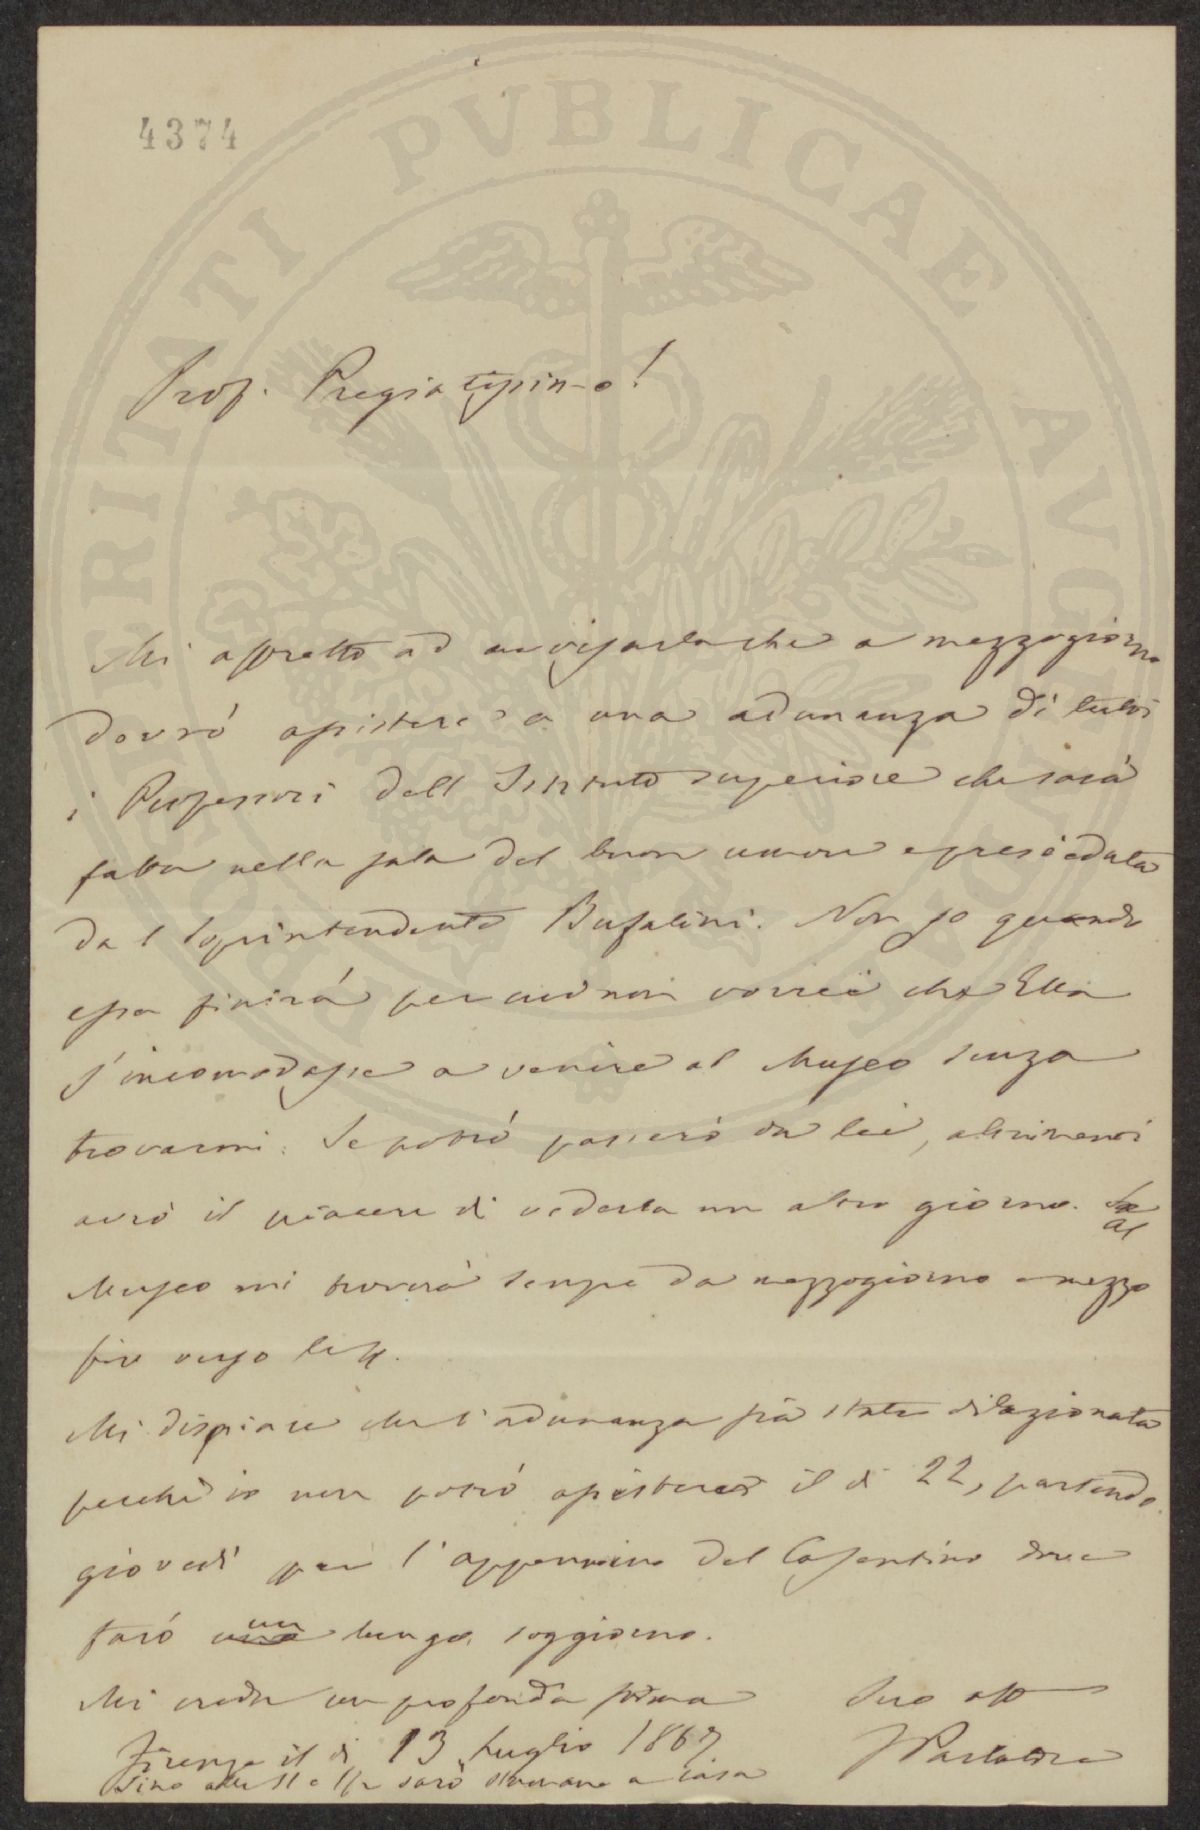 4374
PROSPERITATI PVBLICAE AVGENDAE
Prof. Pregiatissimo!
Mi affretto ad avvisarla che a mezzogiorno
dovró assistere a una adunanza di tutti
i Professori dell Istituto superiore che sarà
fatta nella sala del buon umore e presiedata
dal Soprintendente Bufalini. Non so quando
essa finirá per cui non vorrei che Ella
s'incomodasse a venire al Museo senza
trovarmi. Se potró passeró da lei, altrimenti
avró il piacere di vederla un altro giorno. Al
Museo mi troverà sempre da mezzogiorno e mezzo
fin verso le
Mi dispiace che l'adunanza sia stata dilazionata
perchè io non potró assistere il di 22, partendo
giovedì per l'appennino del Casentino dove
faró un lungo soggiorno.
Mi creda con profonda stima Suo aff
Firenze il di 13 Luglio 1867 FParlatore
Sino alle 11 e ½ saró stamane a casa